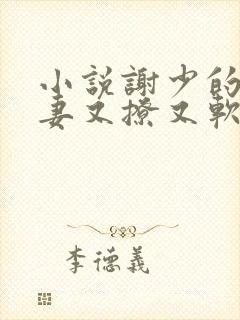 小説謝少的
妻又撩又軟
李德義